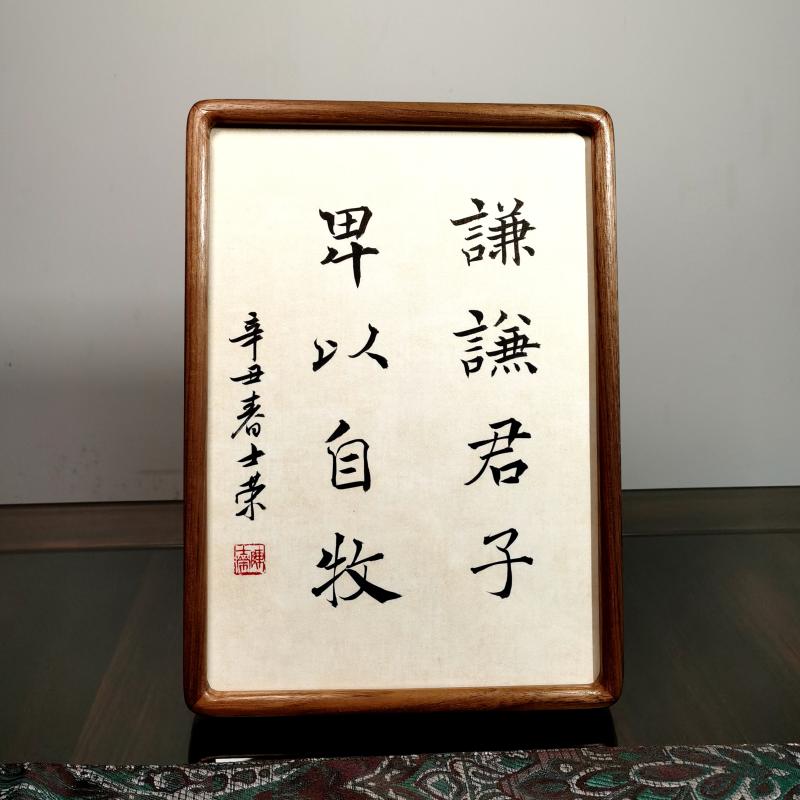 謙謙君子
卑以自牧
辛丑春士荣